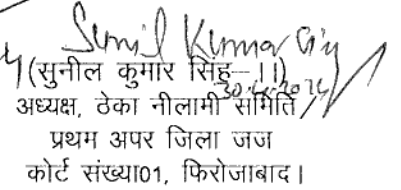 Sunil Kumar Singh
(सुनील कुमार सिंह–।।)
अध्यक्ष, ठेका नीलामी समिति
प्रथम अपर जिला जज
कोर्ट संख्या01, फिरोजाबाद।